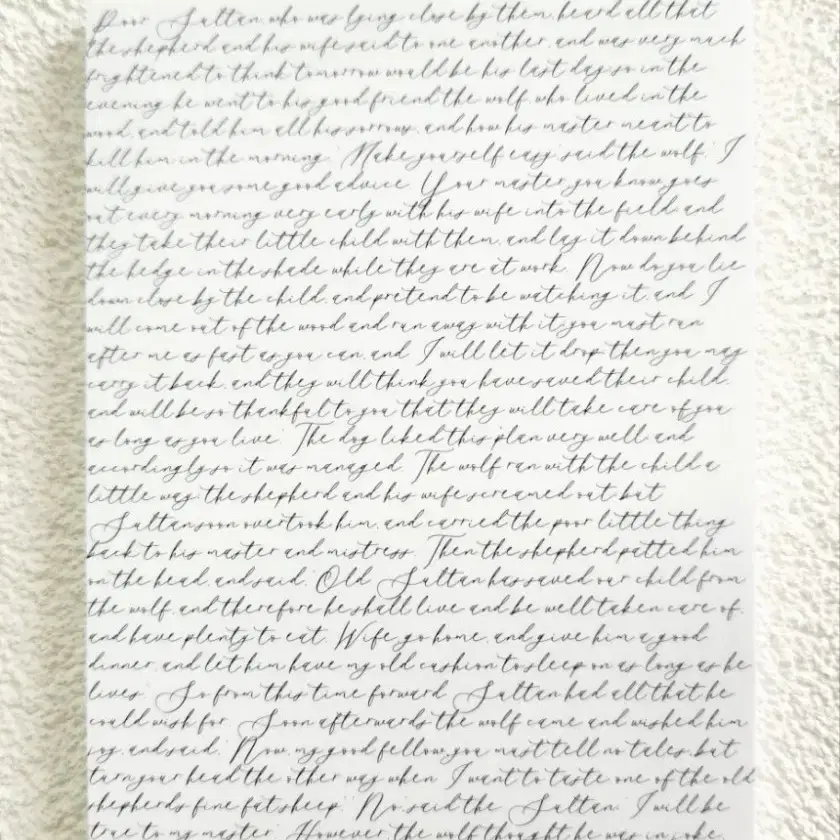 Poor Sultan, who was lying close by them, heard all that
the shepherd and his wife said to one another, and was very much
frightened to think tomorrow would be his last day so in the
evening he went to his good friend the wolf, who lived in the
wood, and told him all his sorrows, and how his master meant to
kill him in the morning. Make yourself easy, said the wolf, I
will give you some good advice. Your master, you know, goes
out every morning very early with his wife into the field, and
they take their little child with them, and lay it down behind
the hedge in the shade while they are at work. Now do you lie
down close by the child, and pretend to be watching it, and I
will come out of the wood and run away with it, you must run
after me as fast as you can, and I will let it drop then you may
carry it back, and they will think you have saved their child,
and will be so thankful to you that they will take care of you
as long as you live. The dog liked this plan very well and
accordingly so it was managed. The wolf ran with the child a
little way, the shepherd and his wife screamed out but
Sultan soon overtook him, and carried the poor little thing
back to his master and mistress. Then the shepherd patted him
on the head, and said, Old Sultan has saved our child from
the wolf, and therefore he shall live and be well taken care of,
and have plenty to eat. Wife, go home, and give him a good
dinner, and let him have my old cushion to sleep on as long as he
lives. So from this time forward Sultan had all that he
could wish for. Soon afterwards the wolf came and wished him
joy, and said, Now, my good fellow, you must tell no tales, but
turn your head the other way when I want to taste one of the old
shepherds fine fat sheep. No, said the Sultan, I will be
true to my master. However, the wolf thought he was in joke,